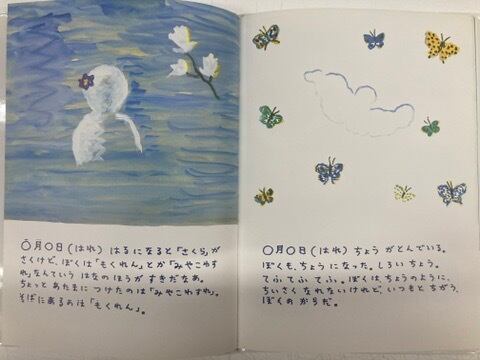 〇月〇日(はれ) はるになると「さくら」が
さくけど、ぼくは「もくれん」とか「みやこわす
れ」なんていう はなのほうが すきだなあ。
ちょっと あたまに つけたのは「みやこわすれ」。
そばにあるのは「もくれん」。
〇月〇日(はれ) ちょう がとんでいる。
ぼくも、ちょうになった。しろい ちょう。
てふ てふ てふ。ぼくは、ちょうのように、
ちいさく なれないけれど、いつもと ちがう、
ぼくの からだ。